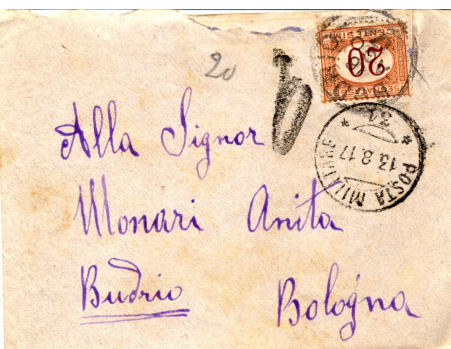 20
20
CENTESIMI
34
POSTA MILITARE
13.8.17
Alla Signor
Monari Anita
Budrio Bologna